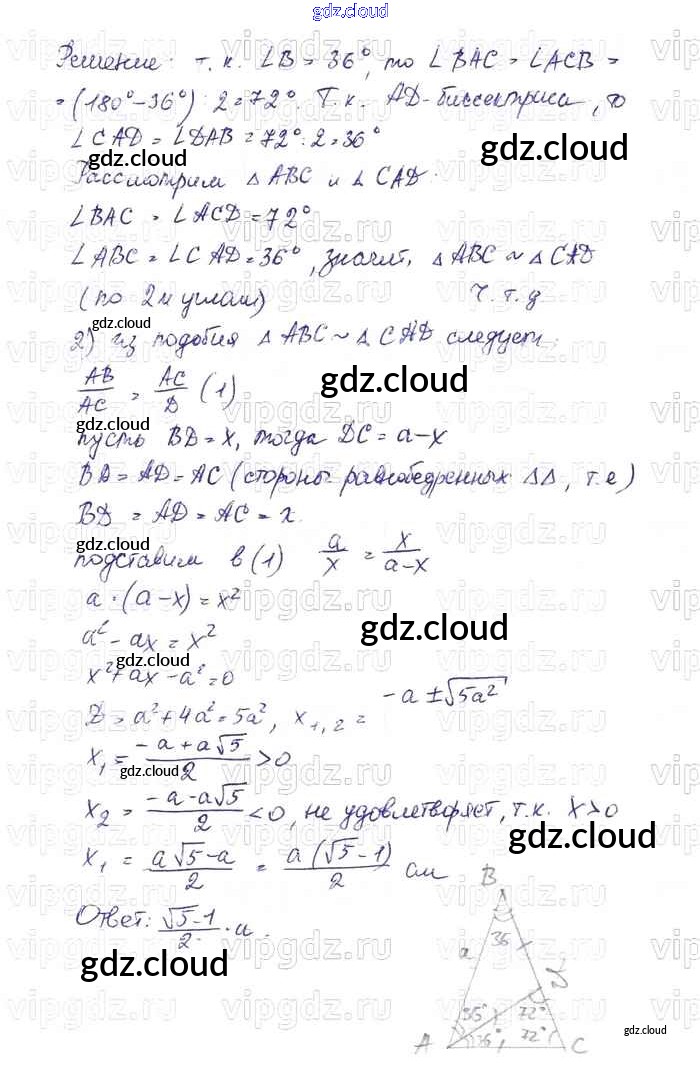 gdz.cloud
Решение: т.к. ∠B = 36°, то ∠BAC = ∠ACB =
= (180° – 36°) : 2 = 72°. Т.к. AD-биссектриса, то
∠CAD = ∠DAB = 72° : 2 = 36°
gdz.cloud
Рассмотрим △ ABC и △ CAD:
∠BAC = ∠ACD = 72°
∠ABC = ∠CAD = 36°, значит, △ ABC ~ △ CAD
(по 2м углам) ч.т.д
gdz.cloud
2) из подобия △ ABC ~ △ CAD следует:
AB/AC = AC/D (1)
gdz.cloud
gdz.cloud
пусть BD = x, тогда DC = a – x
BD = AD = AC (стороны равнобедренных △△, т.е)
BD = AD = AC = x.
gdz.cloud
подставим в (1) a/x = x/a–x
a · (a – x) = x²
gdz.cloud
a² – ax = x²
gdz.cloud
x² + ax – a² = 0
D = a² + 4a² = 5a², x1,2 = –a ± √5a²
x1 = –a + a√5/2 > 0
gdz.cloud
x2 = –a – a√5/2 < 0, не удовлетворяет, т.к. x > 0
gdz.cloud
x1 = a√5 – a/2 = a(√5 – 1)/2 см
Ответ: √5 – 1/2 · a.
gdz.cloud
B
36
a
36° 72°
A 36° 72° C
gdz.cloud